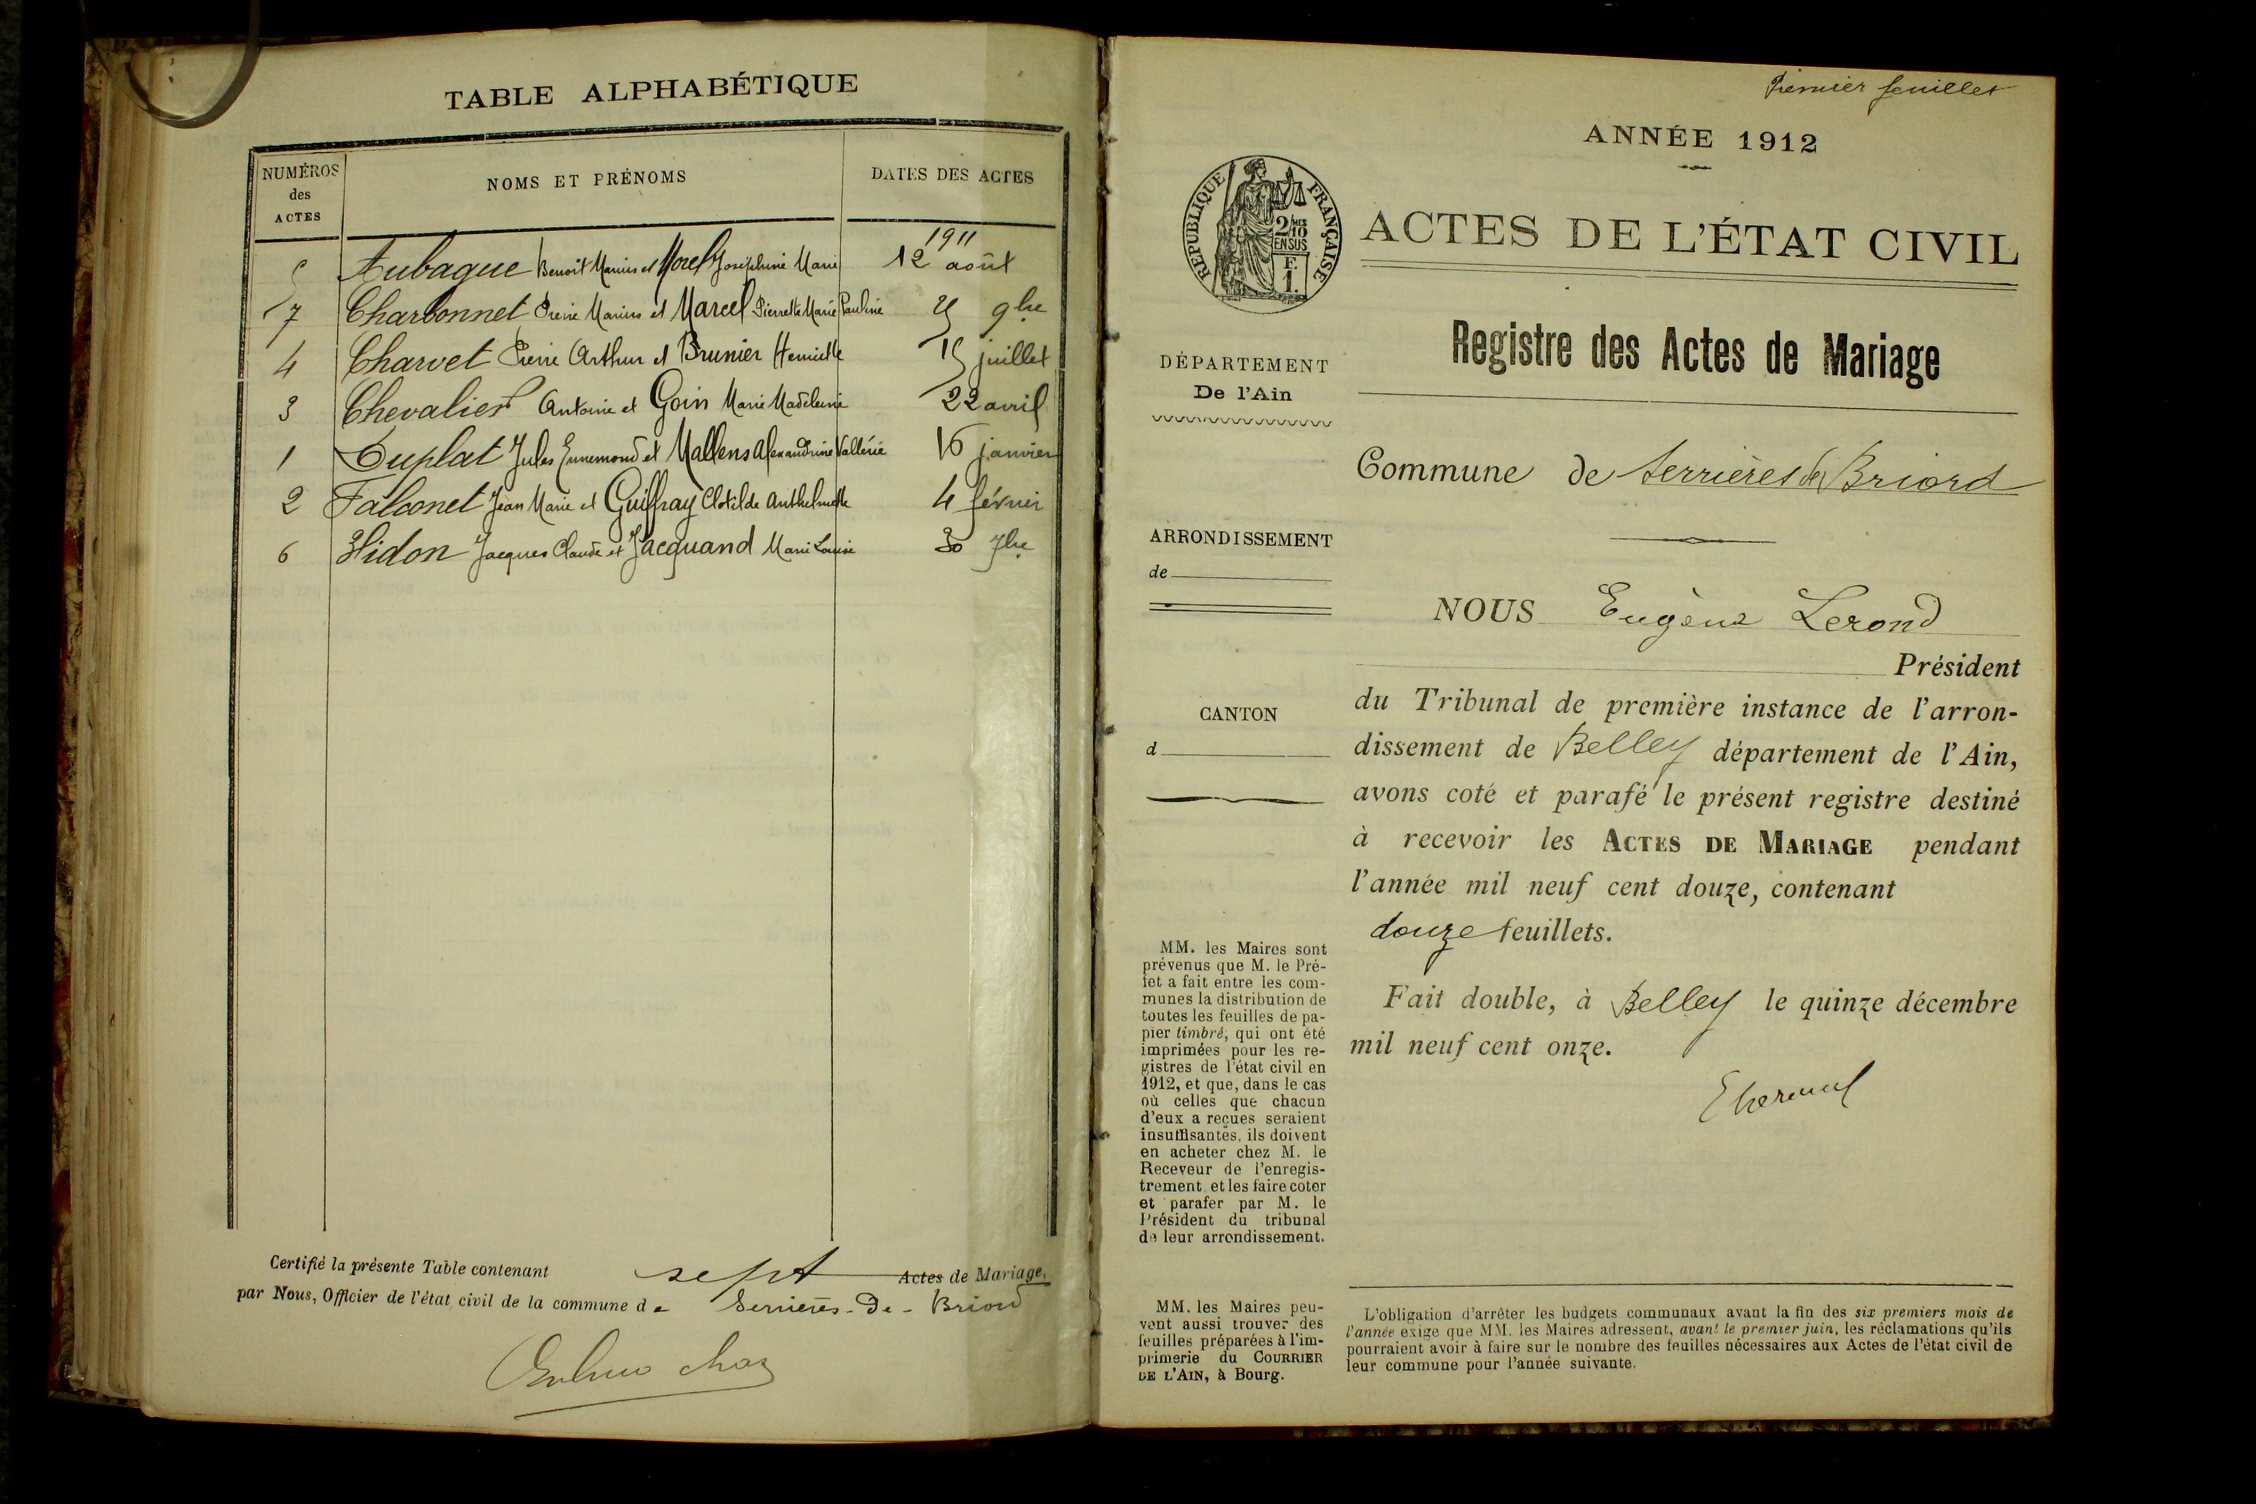 TABLE ALPHABÉTIQUE
NUMÉROS des ACTES
NOMS ET PRÉNOMS
DATES DES ACTES
1911
5 Aubague Benoit Marius et Morel Joséphine Marie 12 août
7 Charbonnet Pierre Marius et Marcel Pierrette Marie Pauline 25 9bre
4 Charvet Pierre Arthur et Brunier Henriette 15 juillet
3 Chevalier Antoine et Goin Marie Madeleine 22 avril
1 Duplat Jules Ennemond et Mallens Alexandrine Vallérie 16 janvier
2 Falconet Jean Marie et Guiffray Clotilde Anthelmette 4 février
6 Hidon Jacques Claude et Jacquand Marie Louise 30 7bre
Certifié la présente Table contenant sept Actes de Mariage,
par Nous, Officier de l'état civil de la commune de Serrières-De-Briord
Premier feuillet
ANNÉE 1912
RÉPUBLIQUE FRANÇAISE
2/10 MES
EN SUS
F.
1.
ACTES DE L'ÉTAT CIVIL
Registre des Actes de Mariage
DÉPARTEMENT
De l'Ain
Commune de Serrières de Briord
ARRONDISSEMENT
de
CANTON
d
NOUS Eugène Lerond
Président
du Tribunal de première instance de l'arron-
dissement de Belley département de l'Ain,
avons coté et parafé le présent registre destiné
à recevoir les ACTES DE MARIAGE pendant
l'année mil neuf cent douze, contenant
douze feuillets.
Fait double, à Belley le quinze décembre
mil neuf cent onze.
MM. les Maires sont
prévenus que M. le Pré-
fet a fait entre les com-
munes la distribution de
toutes les feuilles de pa-
pier timbré, qui ont été
imprimées pour les re-
gistres de l'état civil en
1912, et que, dans le cas
où celles que chacun
d'eux a reçues seraient
insuffisantes, ils doivent
en acheter chez M. le
Receveur de l'enregis-
trement et les faire coter
et parafer par M. le
Président du tribunal
de leur arrondissement.
MM. les Maires peu-
vent aussi trouver des
feuilles préparées à l'im-
primerie du COURRIER
DE L'AIN, à Bourg.
L'obligation d'arrêter les budgets communaux avant la fin des six premiers mois de
l'année exige que MM. les Maires adressent, avant le premier juin, les réclamations qu'ils
pourraient avoir à faire sur le nombre des feuilles nécessaires aux Actes de l'état civil de
leur commune pour l'année suivante.